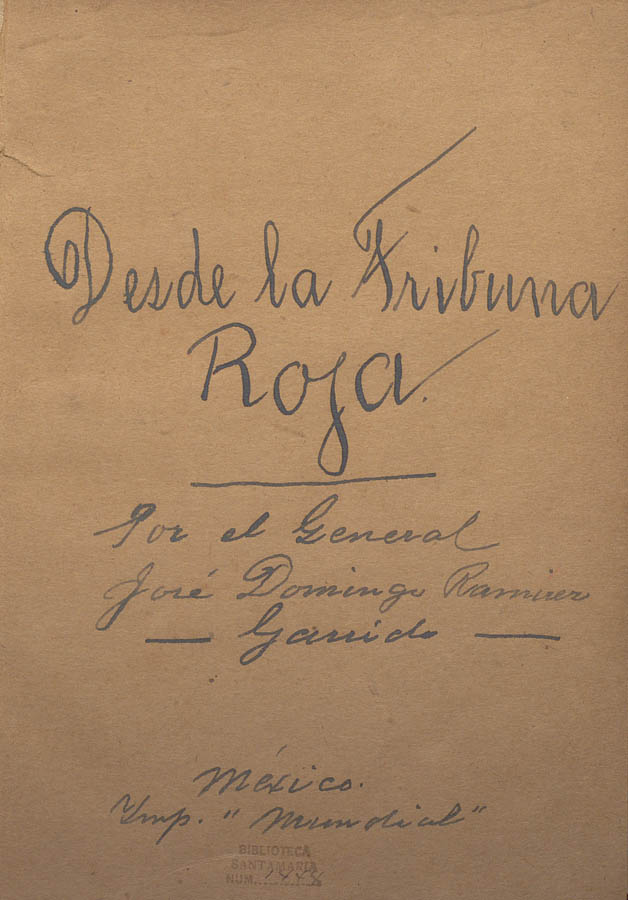 Desde la Tribuna
Roja.
Por el General
José Domingo Ramirez
— Garrido —
México.
Imp. "Mundial"
BIBLIOTECA
SANTAMARIA
NUM.